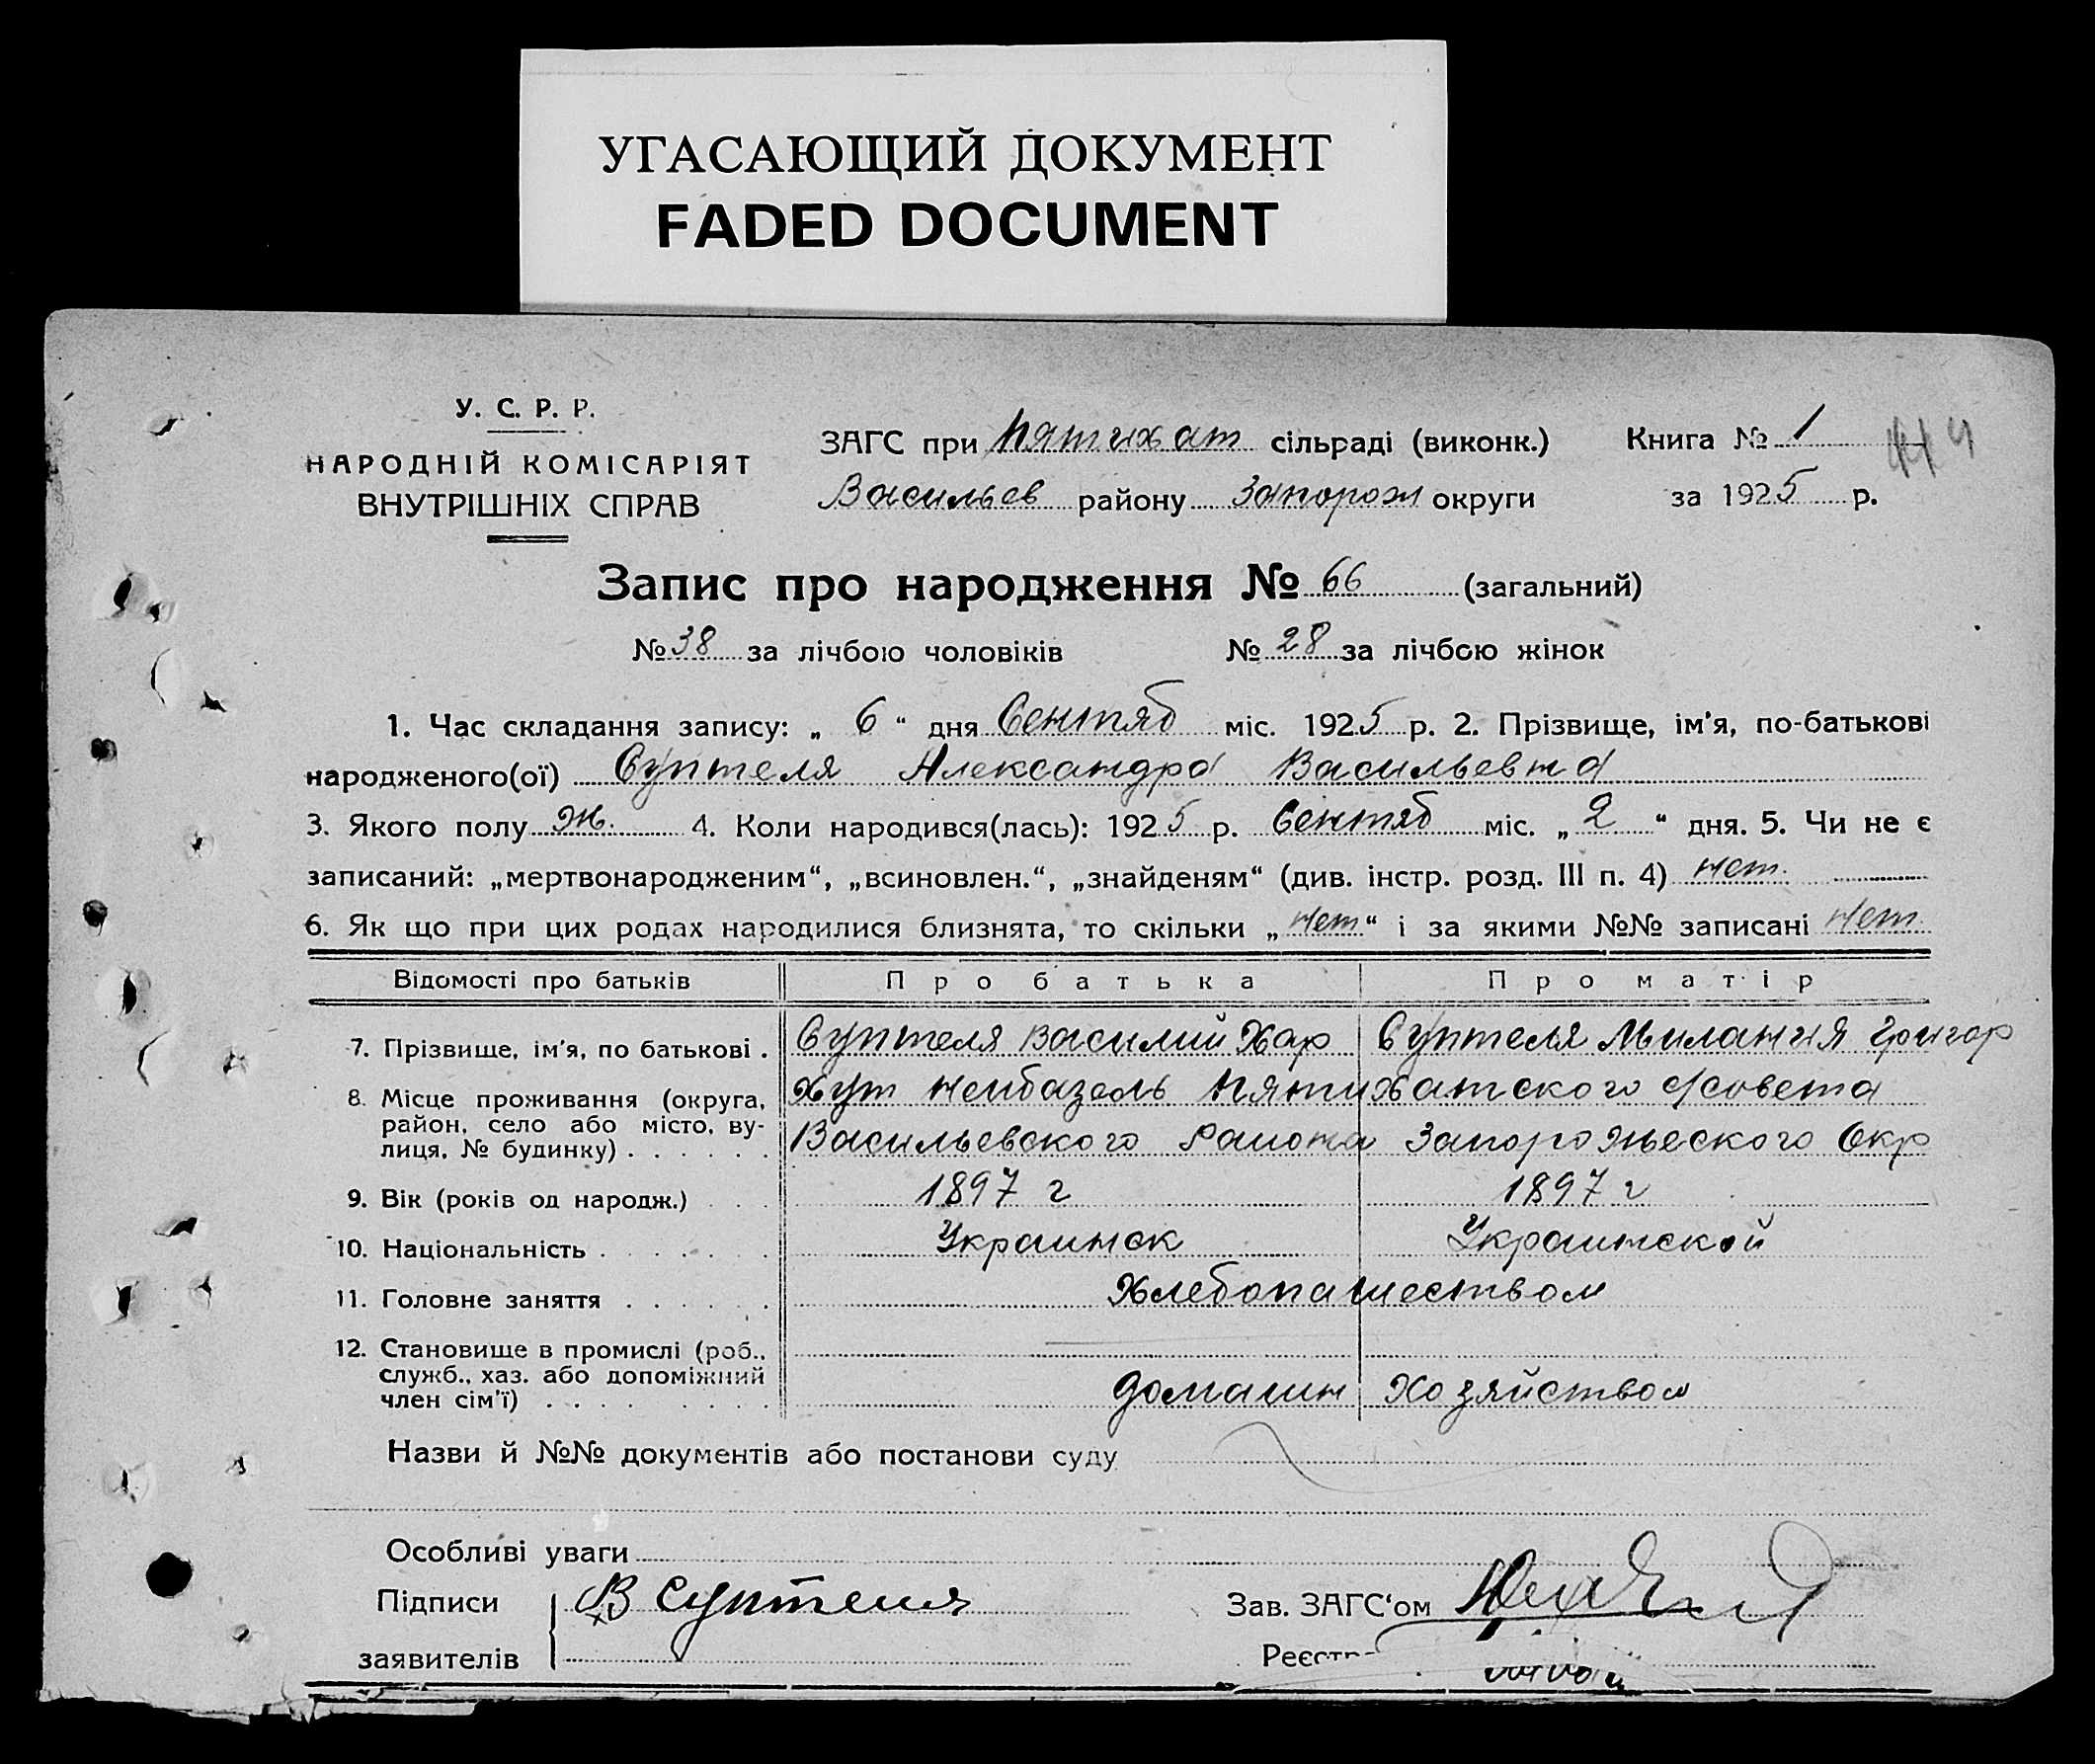 УГАСАЮЩИЙ ДОКУМЕНТ
FADED DOCUMENT
У. С. Р. Р.
НАРОДНІЙ КОМІСАРІЯТ
ВНУТРІШНІХ СПРАВ
ЗАГС при Пятихат сільраді (виконк.) Книга № 1
Васильев району Запорож округи за 1925 р.
Запис про народження № 66 (загальний)
№ 38 за лічбою чоловіків № 28 за лічбою жінок
1. Час складання запису: „ 6 “ дня Сентяб міс. 1925 р. 2. Прізвище, ім'я, по-батькові
народженого(ої) Суптеля Александра Васильевна
3. Якого полу ж. 4. Коли народився(лась): 1925 р. Сентяб міс. „ 2 “ дня. 5. Чи не є
записаний: „мертвонародженим“, „всиновлен.“, „знайденям“ (див. інстр. розд. III п. 4) нет.
6. Як що при цих родах народилися близнята, то скільки „ нет “ і за якими №№ записані нет
Відомості про батьків Про батька Про матір
7. Прізвище, ім'я, по батькові . Суптеля Василий Хар Суптеля Милания Григор
8. Місце проживання (округа, район, село або місто, вулиця, № будинку) . . . . . .
Хут Нейбазель Пятихатского с/совета
Васильевского Района Запорожьеского Окр
9. Вік (років од народж.) . . . 1897 г 1897 г
10. Національність . . . . . . Украинск Украинской
11. Головне заняття . . . . . Хлебопашеством
12. Становище в промислі (роб.,
служб., хаз. або допоміжний
член сім'ї) . . . . . . . . домашн Хозяйством
Назви й №№ документів або постанови суду
Особливі уваги
Підписи В Суптеля Зав. ЗАГС‘ом
заявителів